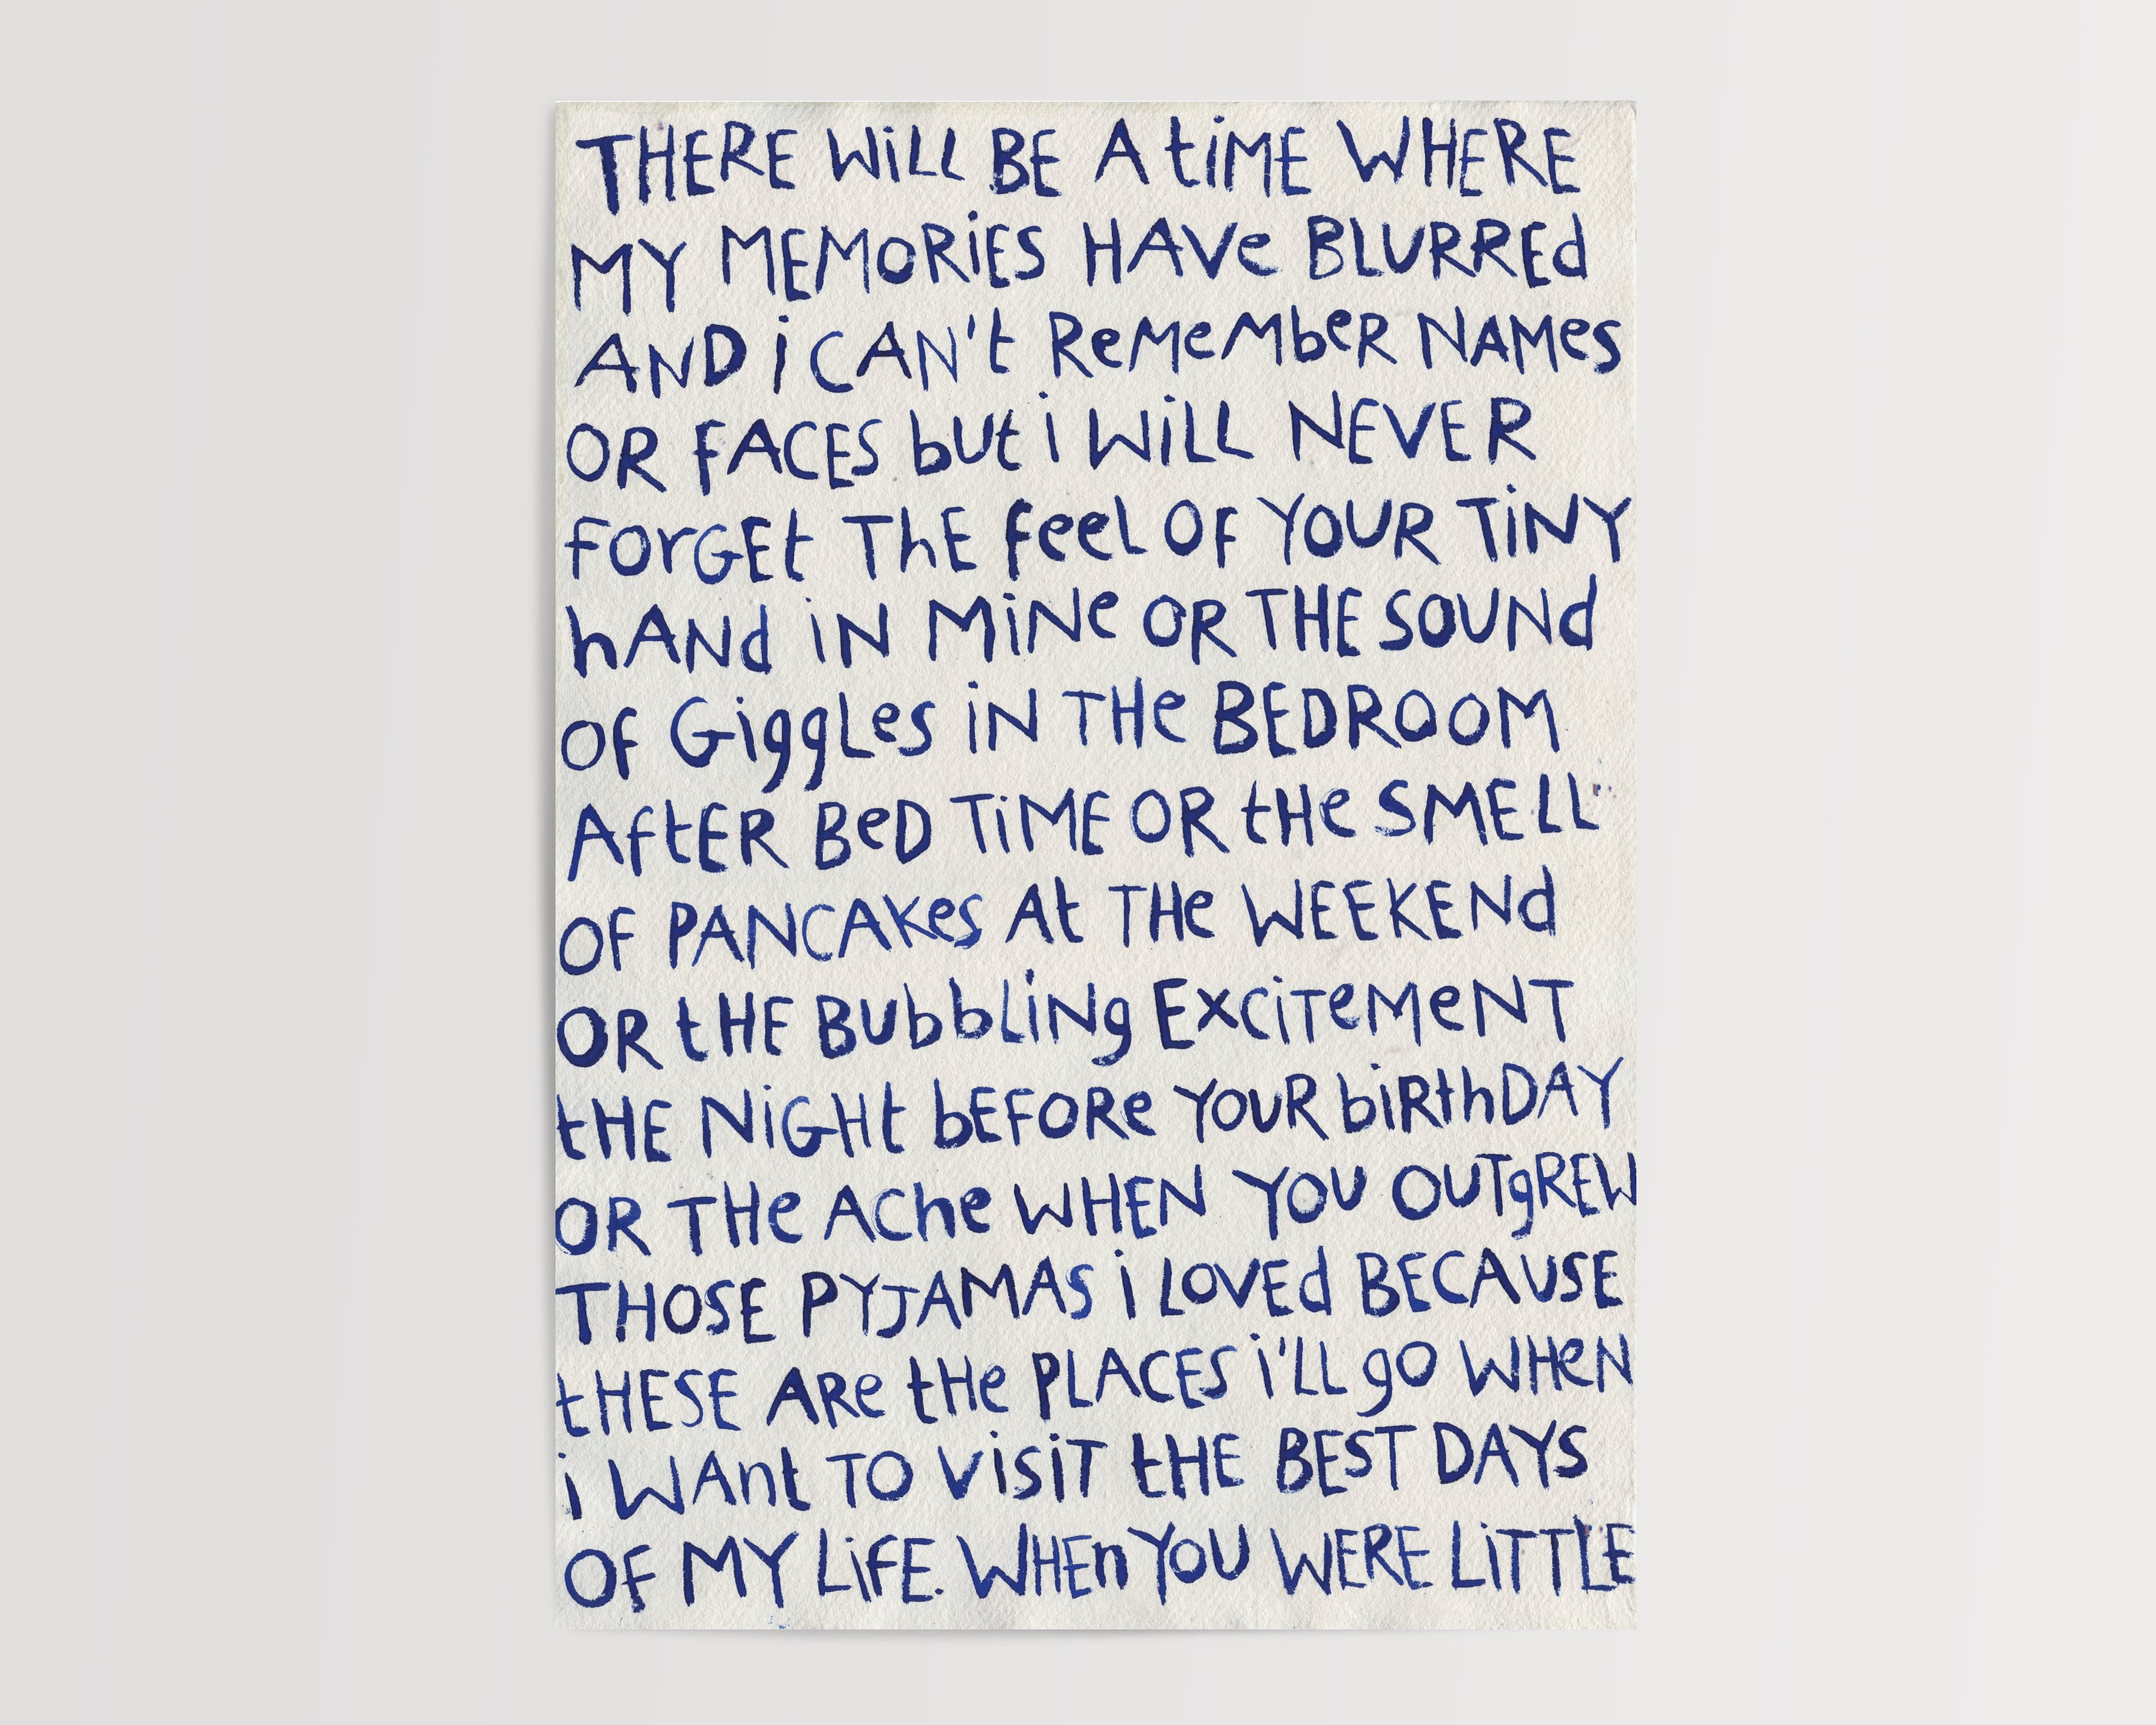 THERE WiLL BE A tiME WHERE
MY MEMORiES HAVe BLURREd
AND i CAN't ReMeMbeR NAMes
OR fACES but i WiLL NEVER
forGEt ThE feel OF YOUR TiNY
hANd iN MiNe OR THE SOUNd
OF GiggLes iN THe BEDROOM
AftER BeD TiME OR tHe SMELL
OF PANCAKes At THe WEEKENd
OR tHE BUbbLiNg ExCiTeMeNT
tHE NiGHt bEFORe YOUR biRthDAY
OR THe AChe WHEN YOU OUTgREW
THOSE PYJAMAS i LOVEd BECAUSE
tHESE ARe tHe PLACES i'LL gO WHeN
i WAnt TO ViSiT tHE BEST DAYS
OF MY LiFE. WHEn YOU WERE LiTTLE